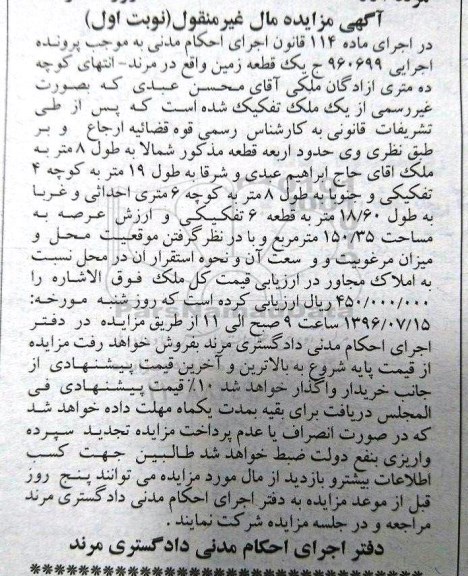 آگهی مزایده مال غیرمنقول(نوبت اول)
در اجرای ماده ۱۱۴ قانون اجرای احکام مدنی به موجب پرونده
اجرایی ۹۶۰۶۹۹ ج یک قطعه زمین واقع در مرند- انتهای کوچه
ده متری ازادگان ملکی آقای محسن عبدی که بصورت
غیررسمی از یک ملک تفکیک شده است که پس از طی
تشریفات قانونی به کارشناس رسمی قوه قضائیه ارجاع و بر
طبق نظری وی حدود اربعه قطعه مذکور شمالا به طول ۸ متر به
ملک اقای حاج ابراهیم عبدی و شرقا به طول ۱۹ متر به کوچه ۴
تفکیکی و جنوبا به طول ۸ متر به کوچه ۶ متری احداثی و غربا
به طول ۱۸/۶۰ متر به قطعه ۶ تفکیکی و ارزش عرصه به
مساحت ۱۵۰/۳۵ مترمربع و با در نظر گرفتن موقعیت محل و
میزان مرغوبیت و و سعت آن و نحوه استقرار ان در محل نسبت
به املاک مجاور در ارزیابی قیمت کل ملک فوق الاشاره را
۴۵۰/۰۰۰/۰۰۰ ریال ارزیابی کرده است که روز شنبه مورخه:
۱۳۹۶/۰۷/۱۵ ساعت ۹ صبح الی ۱۱ از طریق مزایده در دفتر
اجرای احکام مدنی دادگستری مرند بفروش خواهد رفت مزایده
از قیمت پایه شروع به بالاترین و آخرین قیمت پیشنهادی از
جانب خریدار واگذار خواهد شد ۱۰٪ قیمت پیشنهادی فی
المجلس دریافت برای بقیه بمدت یکماه مهلت داده خواهد شد
که در صورت انصراف یا عدم پرداخت مزایده تجدید سپرده
واریزی بنفع دولت ضبط خواهد شد طالبین جهت کسب
اطلاعات بیشترو بازدید از مال مورد مزایده می توانند پنج روز
قبل از موعد مزایده به دفتر اجرای احکام مدنی دادگستری مرند
مراجعه و در جلسه مزایده شرکت نمایند .
دفتر اجرای احکام مدنی دادگستری مرند
********************************